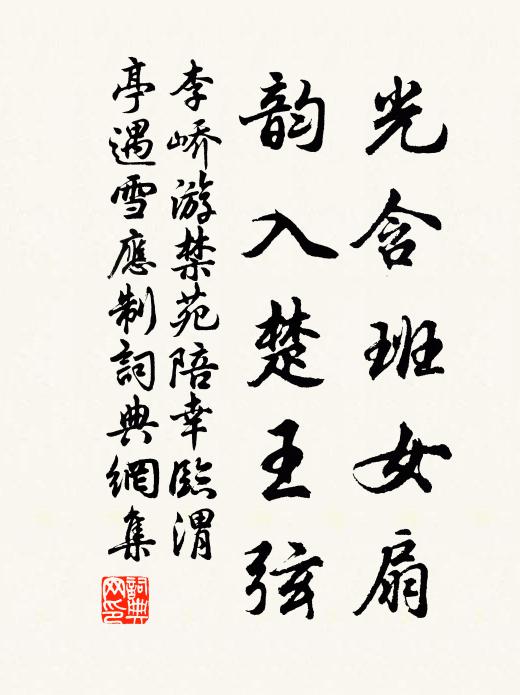 光含班女扇
韵入楚王弦
李峤游禁苑陪幸临渭
亭遇雪應制詞典網集
詞典
网印